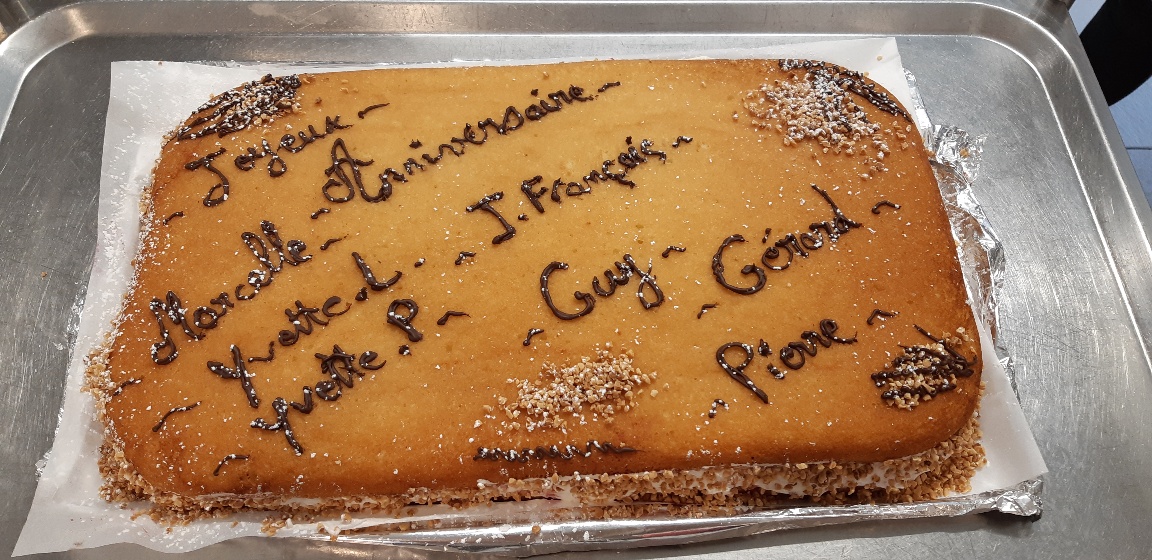 Joyeux
Anniversaire
Marcelle
Yvette.L.
Yvette.P
J.François
Guy
Gérard
Pierre